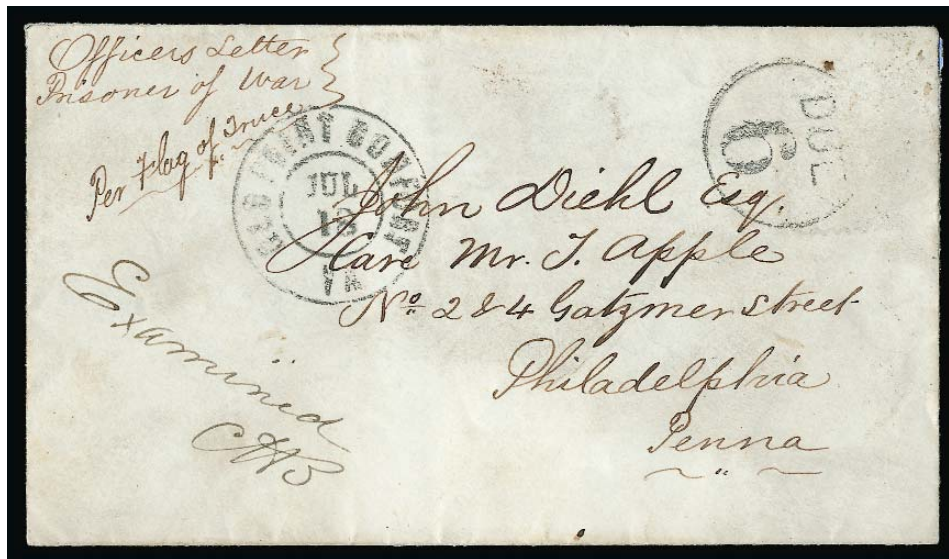 Officers Letter
Prisoner of War
Per Flag of Truce
OLD POINT COMFORT
JUL
18
VA
DUE
6
John Diehl Esq.
Care Mr. T. Apple
No. 2 & 4 Gatzmer Street
Philadelphia
Penna
Examined